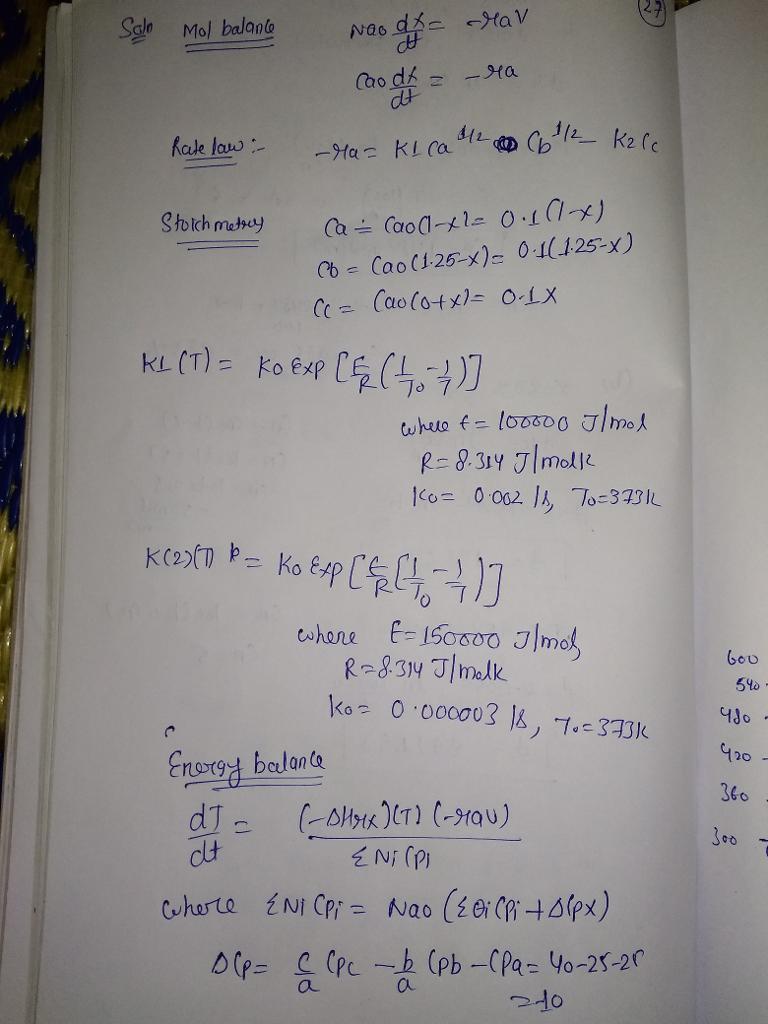 27
Soln Mol balance Nao dx/dt = -raV
Cao dx/dt = -ra
Rate law :- -ra = K1 Ca^1/2 Cb^1/2 - K2 Cc
Stoichmetry Ca = Cao(1-x) = 0.1(1-x)
Cb = Cao(1.25-x) = 0.1(1.25-x)
Cc = Cao(0+x) = 0.1x
K1(T) = Ko Exp [E/R (1/To - 1/T)]
where E = 100000 J/mol
R = 8.314 J/molk
Ko = 0.002 /s, To=373k
K(2)(T) = Ko Exp [E/R [1/To - 1/T)]
where E = 150000 J/mol,
R = 8.314 J/molk
Ko = 0.000003 /s, To=373k
Energy balance
dT/dt = (-ΔHrx)(T) (-raV) / ΣNiCpi
where ΣNi Cpi = Nao (ΣΘi Cpi + ΔCpx)
ΔCp = c/a Cpc - b/a Cpb - Cpa = 40-25-25
= -10
600
540
480
420
360
300